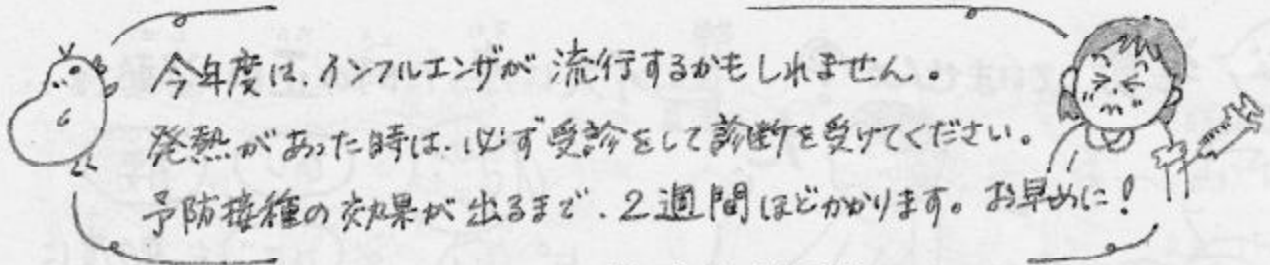 今年度は、インフルエンザが流行するかもしれません。
発熱があった時は、必ず受診をして診断を受けてください。
予防接種の効果が出るまで、2週間ほどかかります。お早めに！